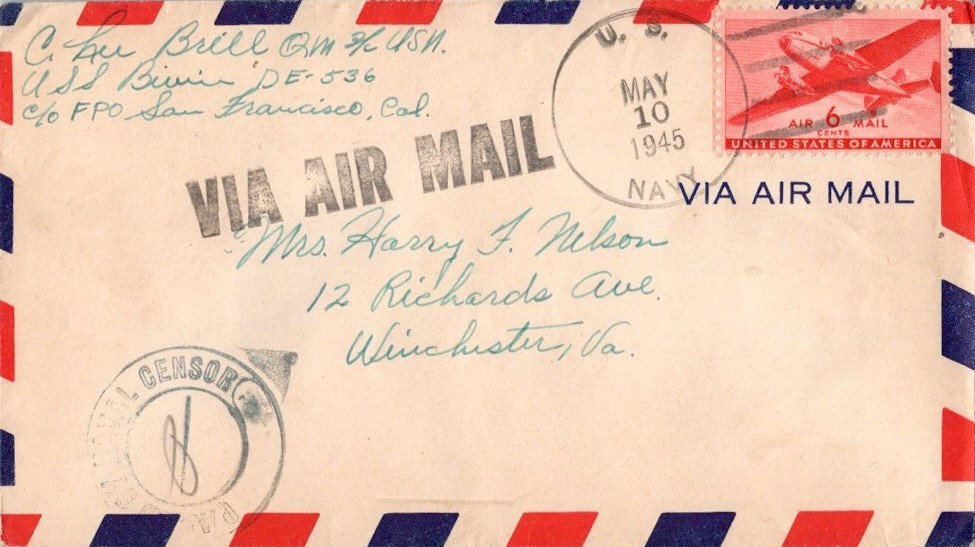 C. Lee Brill QM 3/c USN.
USS Bivin DE-536
c/o FPO San Francisco, Cal.
U. S.
MAY
10
1945
NAVY
AIR 6 MAIL
CENTS
UNITED STATES OF AMERICA
VIA AIR MAIL
VIA AIR MAIL
Mrs. Harry F. Nelson
12 Richards Ave.
Winchester, Va.
PASSED BY NAVAL CENSOR